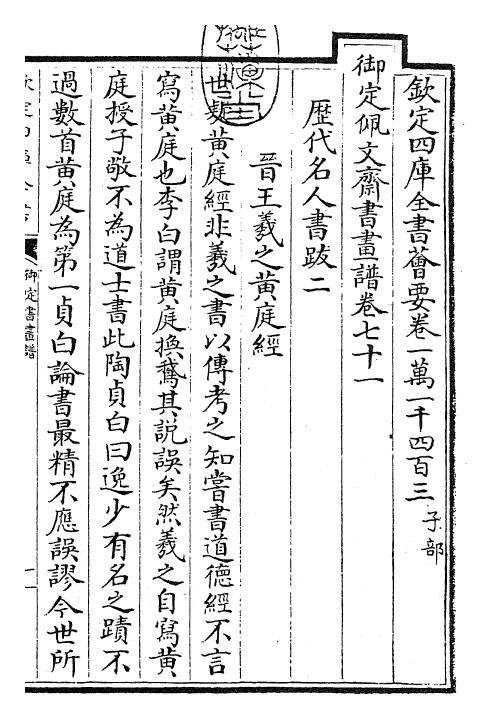 欽定四庫全書薈要卷一萬一千四百三 子部
御定佩文齋書畫譜卷七十一
歷代名人書跋二
晉王羲之黃庭經
世疑黃庭經非羲之書以傳考之知嘗書道德經不言
寫黃庭也李白謂黃庭換鵞其說誤矣然羲之自寫黃
庭授子敬不為道士書此陶貞白曰逸少有名之蹟不
過數首黃庭為第一貞白論書最精不應誤謬今世所
御定書畫譜